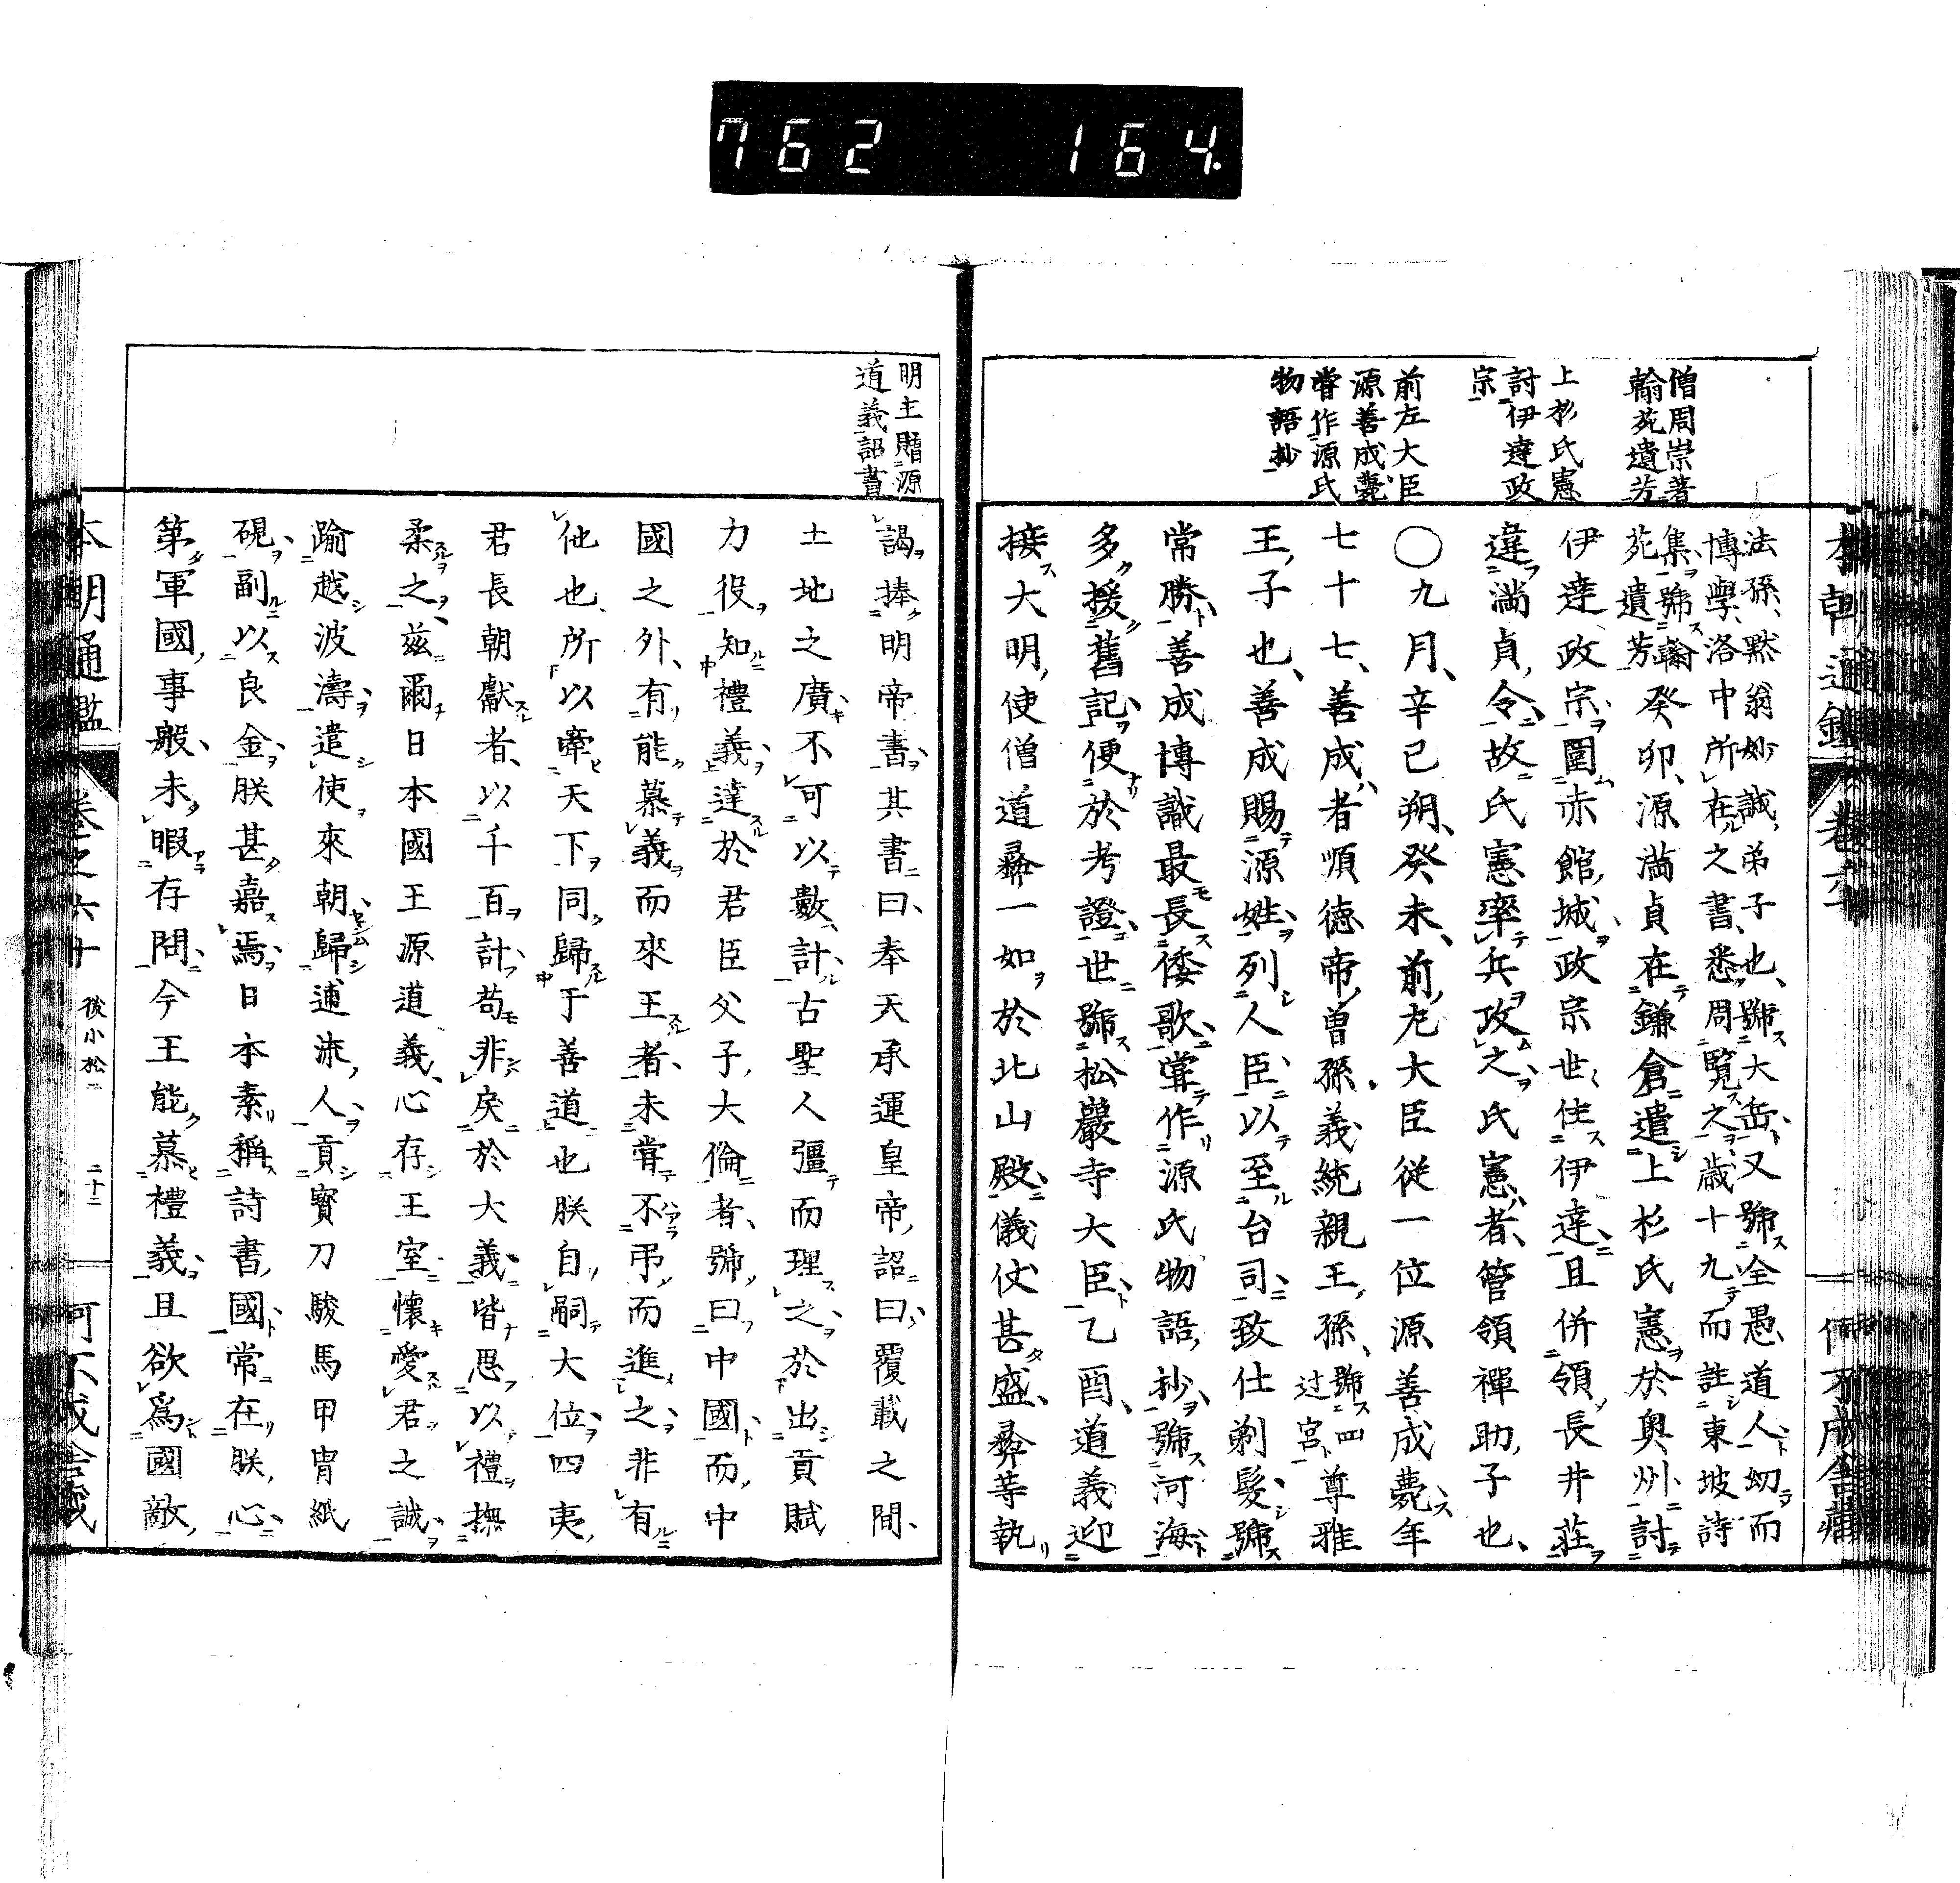 762 164.
僧周崇著
翰苑遺芳
上杉氏憲
討伊達政
宗
前左大臣
源善成薨
嘗作源氏
物語抄
法孫、黙翁妙誠弟子也、號大岳、又號全愚道人、幼而
博學、洛中所在之書、悉周覽之、歲十九而註東坡詩
集號翰
苑遺芳
癸卯、源滿貞在鎌倉遣上杉氏憲於奥州討
伊達政宗、圍赤館城、政宗世住伊達、且併領長井莊、
違滿貞令、故氏憲率兵攻之、氏憲者、管領禪助子也、
○九月、辛巳朔、癸未、前左大臣從一位源善成薨年
七十七、善成者順德帝曽孫義統親王孫、
號四
辻宮
尊雅
王子也、善成賜源姓、列人臣、以至台司、致仕剃髮、號
常勝、善成博識最長倭歌、嘗作源氏物語抄、號河海
多援舊記、便於考證、世號松巖寺大臣、乙酉、道義迎
接大明使僧道彝一如於北山殿、儀仗甚盛、彝等執
明主贈源
道義詔書
謁捧明帝書、其書曰、奉天承運皇帝詔曰、覆載之間、
土地之廣、不可以數計、古聖人彊而理之、於出貢賦
力役、知禮義、達於君臣父子大倫者、號曰中國、而中
國之外、有能慕義而來王者、未嘗不弔而進之、非有
他也、所以牽天下同歸于善道也朕自嗣大位四夷
君長朝獻者、以千百計、苟非戾於大義、皆思以禮撫
柔之、茲爾日本國王源道義、心存王室、懷愛君之誠、
踰越波濤、遣使來朝、歸逋流人、貢寶刀駿馬甲冑紙
硯、副以良金、朕甚嘉焉、日本素稱詩書國、常在朕心、
第軍國事殷、未暇存問、今王能慕禮義、且欲爲國敵
本朝通鑑 卷之六十 後小松二 二十二